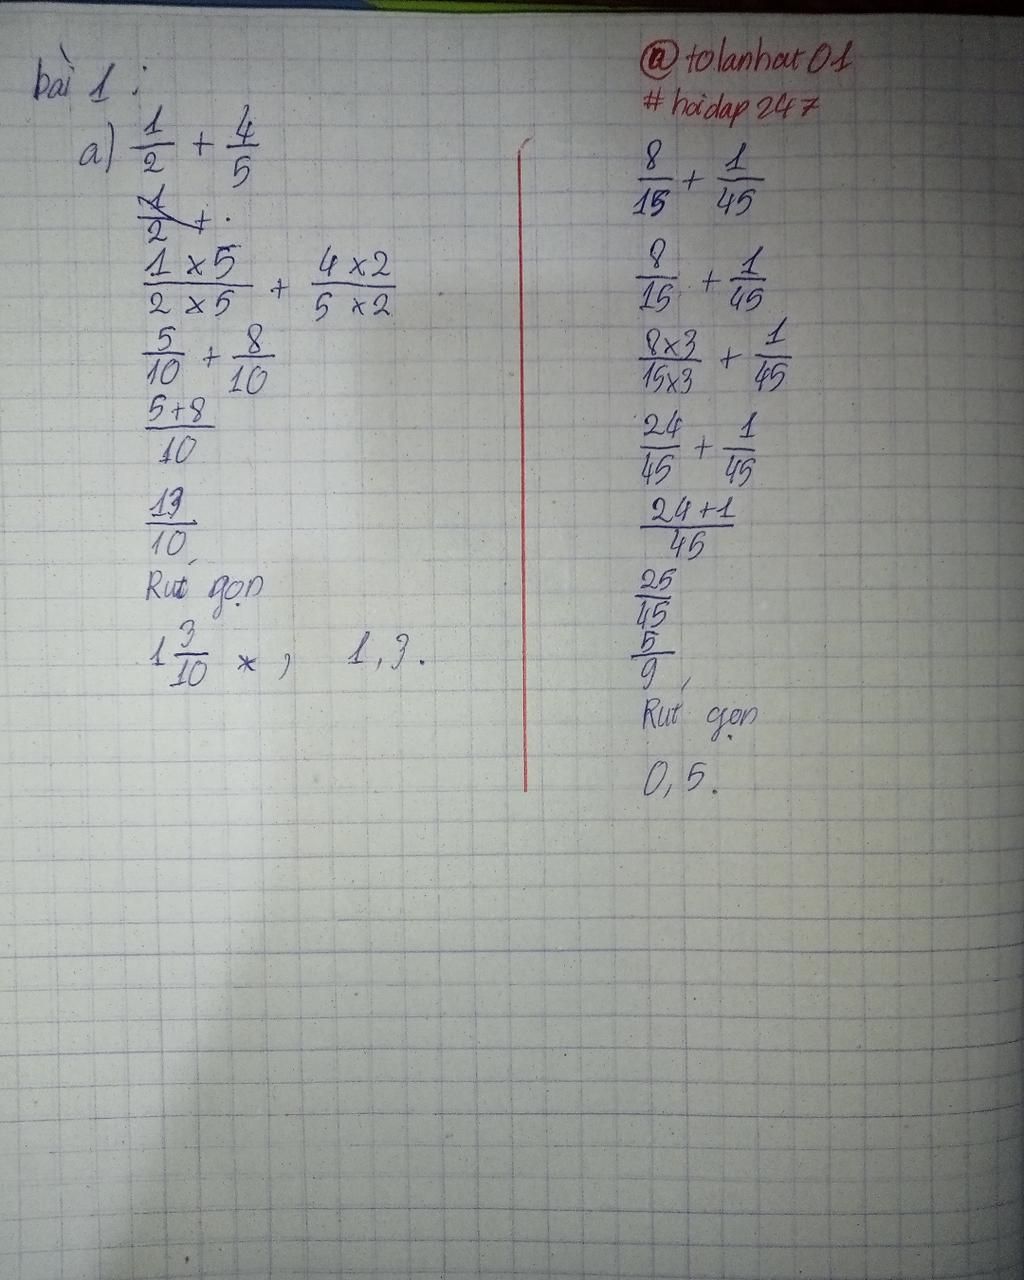 bài 1 :
a) 1/2 + 4/5
1/2 + .
1 x 5 / 2 x 5 + 4 x 2 / 5 x 2
5/10 + 8/10
5 + 8 / 10
13/10
Rút gọn
1 3/10 * , 1,3.
@tolanhat01
#hoidap247
8/15 + 1/45
8/15 + 1/45
8x3 / 15x3 + 1/45
24/45 + 1/45
24 + 1 / 45
25/45
5/9
Rút gọn
0,5.